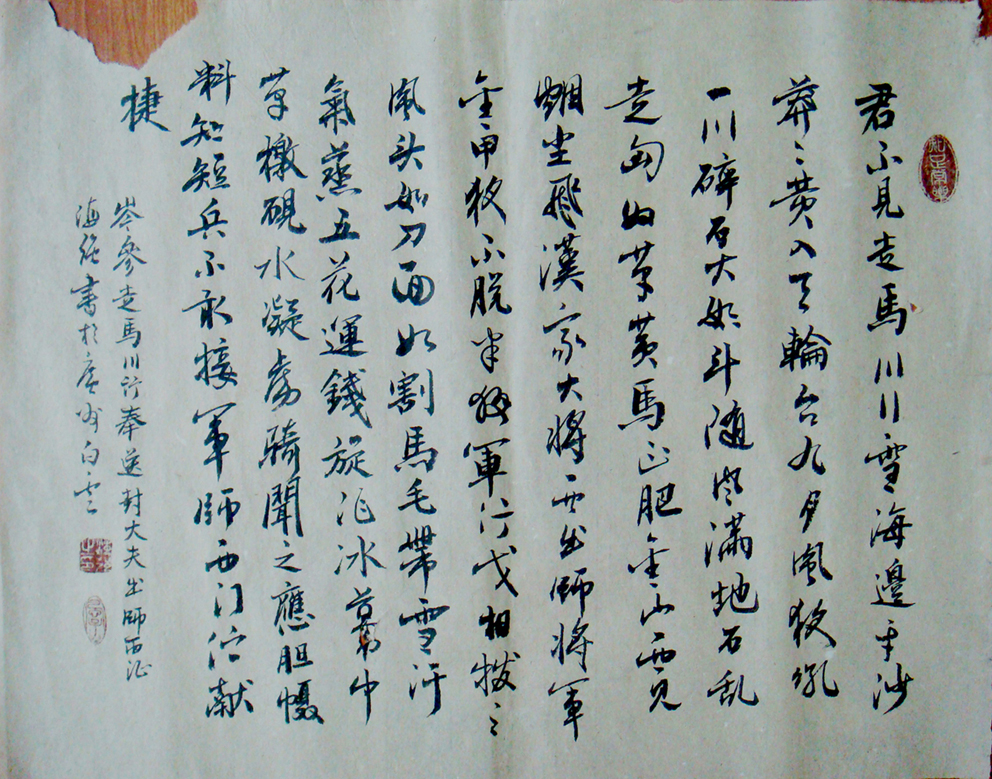 君不見走馬川川雪海邊平沙
莽々黄入天輪台九月風夜吼
一川碎石大如斗随风满地石乱
走匈奴草黄馬正肥金山西見
烟尘飛漢家大將西出師將軍
金甲夜不脱半夜軍行戈相撥々
風头如刀面如割馬毛帶雪汗
氣蒸五花連錢旋作冰幕中
草檄硯水凝虜騎聞之應胆慑
料知短兵不敢接軍師西门伫献
捷
岑參走馬川行奉送封大夫出師西征
海書於州白雲